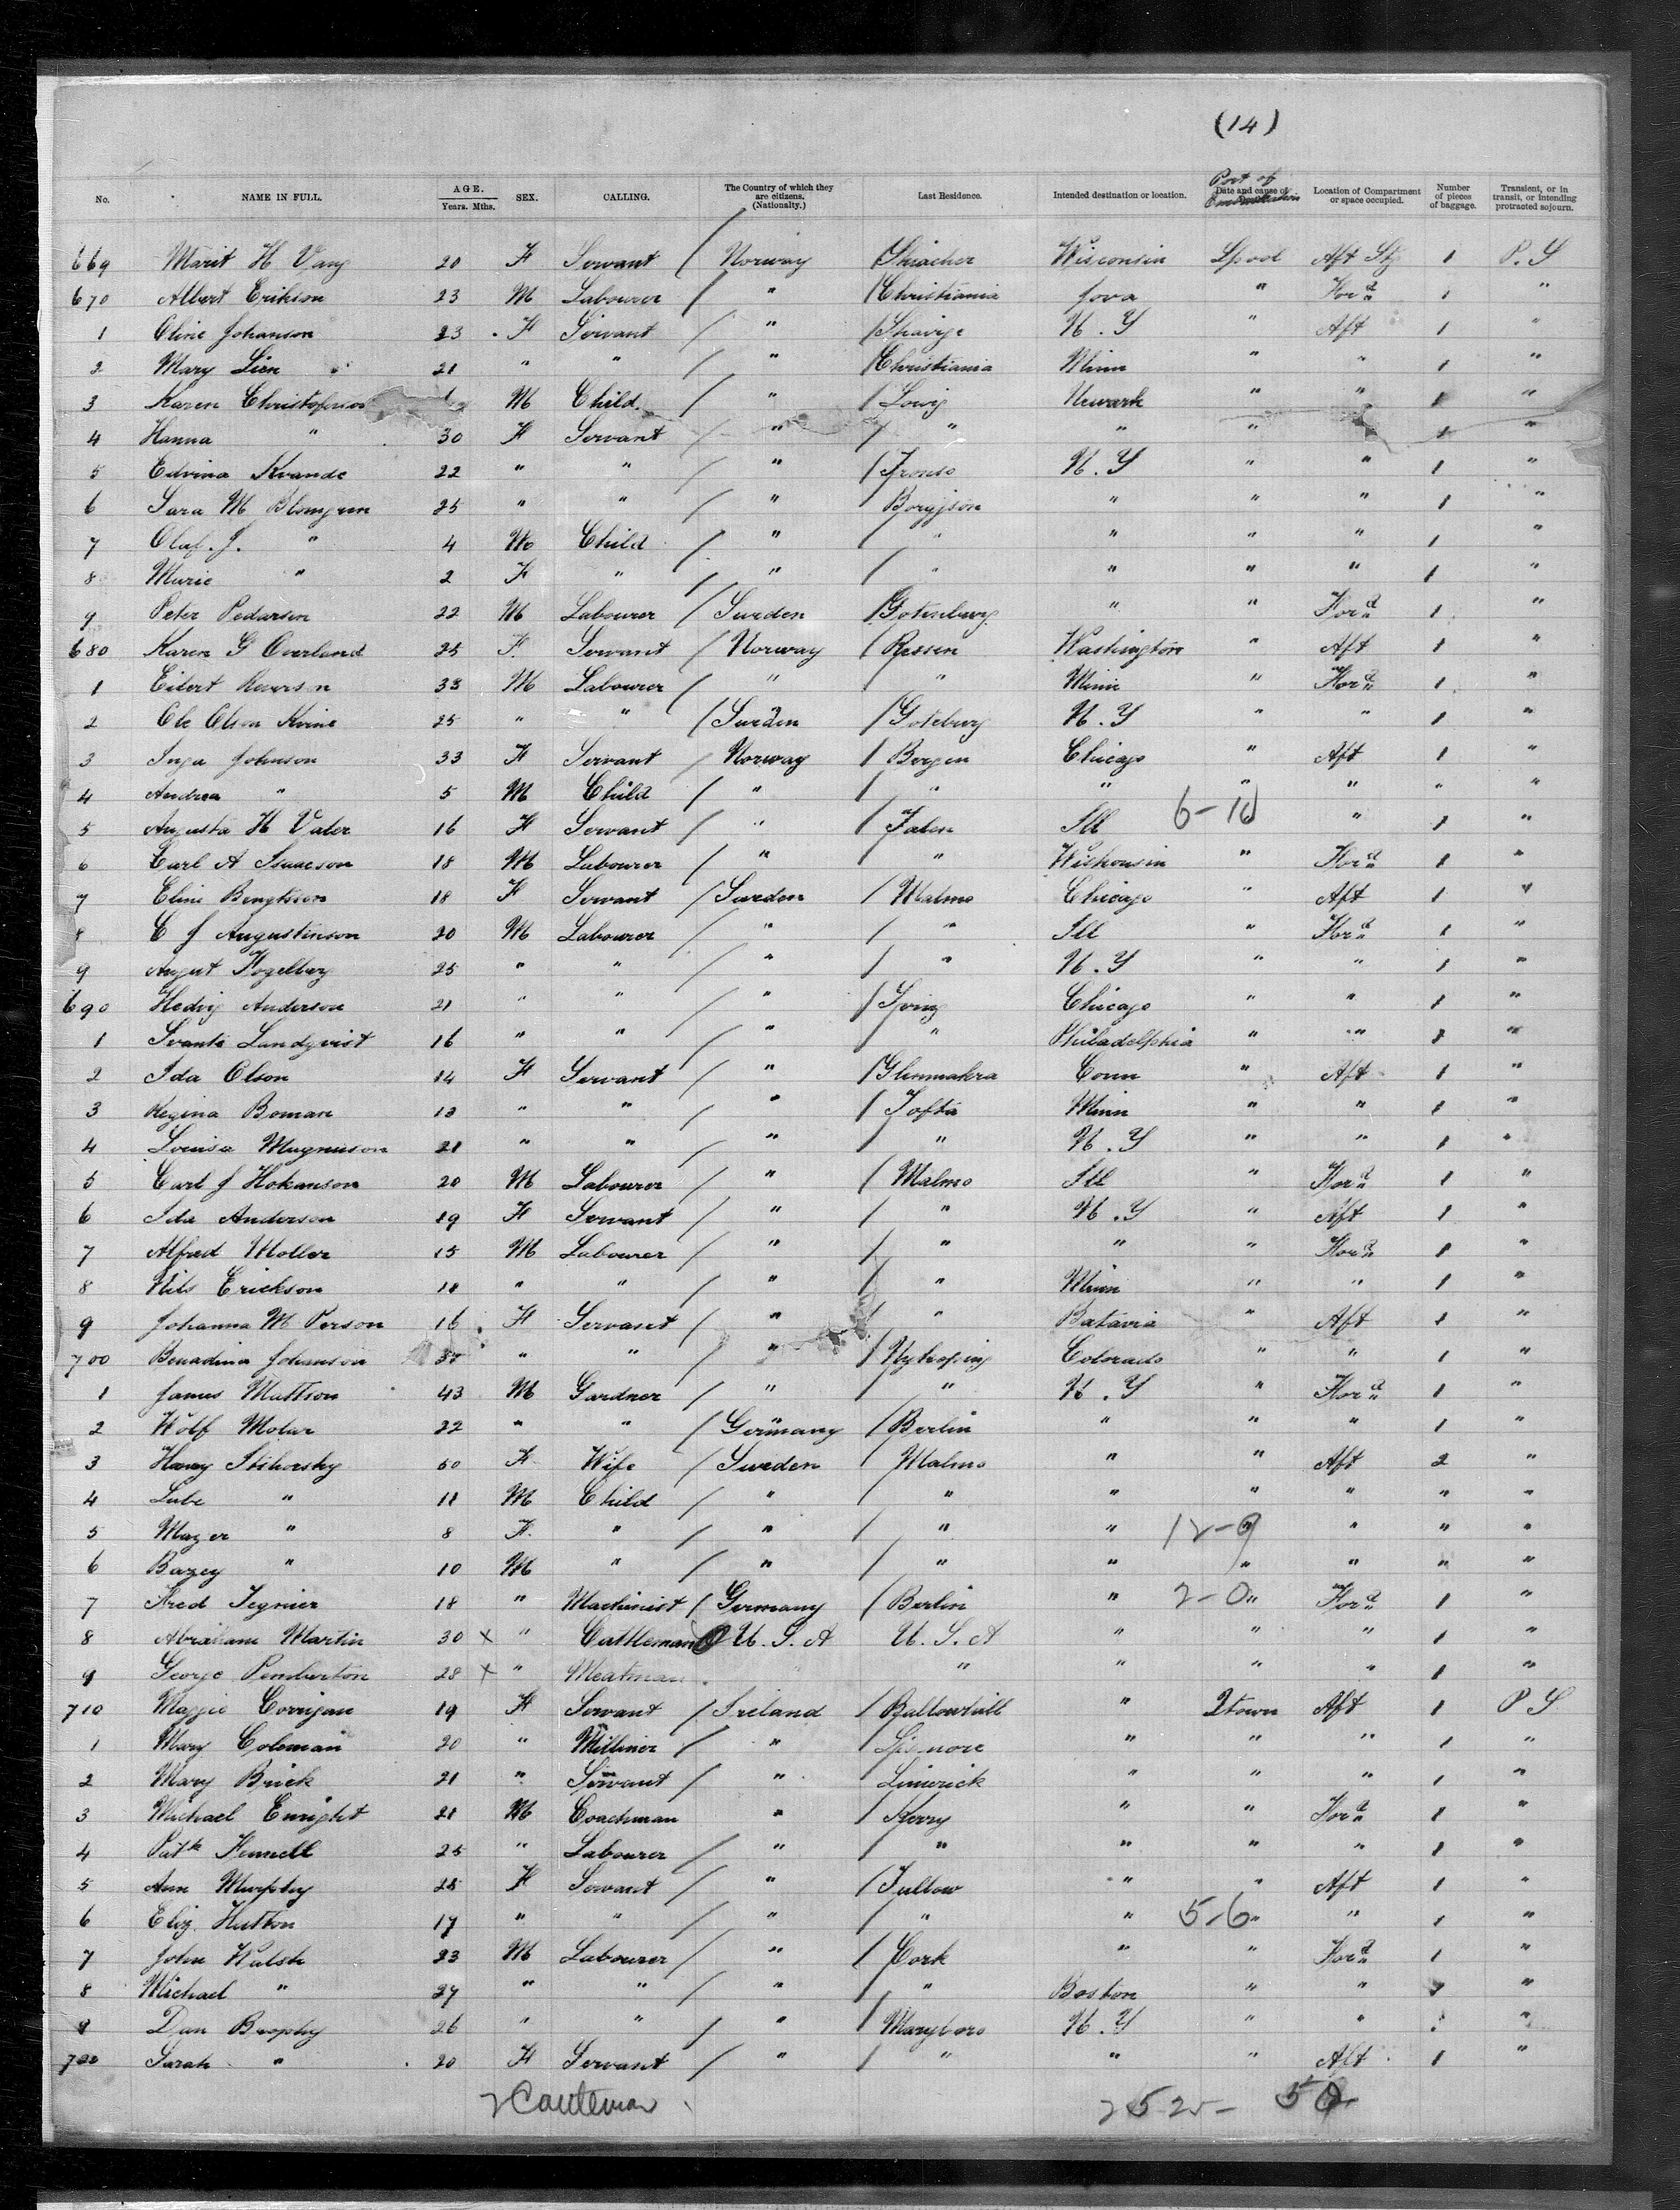 (14)
No. NAME IN FULL. AGE. Years. Mths. SEX. CALLING. The Country of which they are citizens. (Nationality.) Last Residence. Intended destination or location. Port of Date and cause of Location of Compartment or space occupied. Number of pieces of baggage. Transient, or in transit, or intending protracted sojourn.
669 Marit H Vang 20 F Servant Norway Wisconsin Lpool Aft Stg 1 P.S
670 Albert Erikson 23 M Labourer " Christiania Iova " For'd 1 "
1 Oline Johanson 23 F Servant " N.Y " Aft 1 "
2 Mary Lien 21 " " " Christiania Minn " " 1 "
3 Karen Christoferson M Child " Newark " " 1 "
4 Hanna " 30 F Servant " " " " 1 "
5 Edvina Kvande 22 " " " N.Y " " 1 "
6 Sara M Blomgren 25 " " " " " " 1 "
7 Olaf. J. " 4 M Child " " " " " 1 "
8 Marie " 2 F " " " " " " 1 "
9 Peter Pedersen 22 M Labourer Sweden Gotenburg " " For'd 1 "
680 Karen G Overland 25 F Servant Norway Rissen Washington " Aft 1 "
1 Eilert 33 M Labourer " " Minn " For'd 1 "
2 Ole Olsen 25 " " Sweden Goteburg N.Y " " 1 "
3 Inga Johnson 33 F Servant Norway Bergen Chicago " Aft 1 "
4 Andrea " 5 M Child " " " " " " "
5 Augusta H Vater 16 F Servant " Ill 6-10 " 1 "
6 Carl A Isaacson 18 M Labourer " " Wiskonsin " For'd 1 "
7 Eline Bengtsson 18 F Servant Sweden Malmo Chicago " Aft 1 "
8 C J Augustinson 20 M Labourer " " Ill " For'd 1 "
9 August Fogelberg 25 " " " " N.Y " " 1 "
690 Hedvig Anderson 21 " " " Chicago " " 1 "
1 Svante Lundqvist 16 " " " " Philadelphia " " 1 "
2 Ida Olson 14 F Servant " Glimmakra Conn " Aft 1 "
3 Regina Boman 13 " " " Tofta Minn " " 1 "
4 Louisa Magnuson 21 " " " " N.Y " " 1 "
5 Carl J Hokanson 20 M Labourer " Malmo Ill " For'd 1 "
6 Ida Anderson 19 F Servant " " N.Y " Aft 1 "
7 Alfred Moller 15 M Labourer " " " " For'd 1 "
8 Nils Erickson 18 " " " " Minn " " 1 "
9 Johanna M Person 16 F Servant " " Batavia " Aft 1 "
700 Johanson " " " Nykoping Colorado " " 1 "
1 James Mattson 43 M Gardner " " N.Y " For'd 1 "
2 Wolf Molar 22 " " Germany Berlin " " " 1 "
3 50 F Wife Sweden Malmo " " Aft 2 "
4 Lube " 11 M Child " " " " " " "
5 Mazer " 8 F " " " " 12-9 " " "
6 Bazey " 10 M " " " " " " " "
7 Fred Tegnier 18 " Machinist Germany Berlin " 2-0 " For'd 1 "
8 Abraham Martin 30 x " Cattleman U.S.A U.S.A " " " 1 "
9 George Pemberton 28 x " Meatman " " " " 1 "
710 Maggie Corrigan 19 F Servant Ireland " Qtown Aft 1 P S
1 Mary Coleman 20 " Milliner " " " " 1 "
2 Mary Brick 21 " Servant " Limerick " " " 1 "
3 Michael Enright 21 M Coachman " Kerry " " For'd 1 "
4 Patk Fennell 25 " Labourer " " " " " 1 "
5 Ann Murphy 25 F Servant " Tullow " " Aft 1 "
6 Eliz. Hutton 17 " " " " " 5-6 " " 1 "
7 John Walsh 23 M Labourer " Cork " " For'd 1 "
8 Michael " 27 " " " " Boston " " "
9 Dan Brophy 26 " " " Maryboro N.Y " " "
720 Sarah " 20 F Servant " " " " Aft 1 "
2 Cattleman 2525- 50